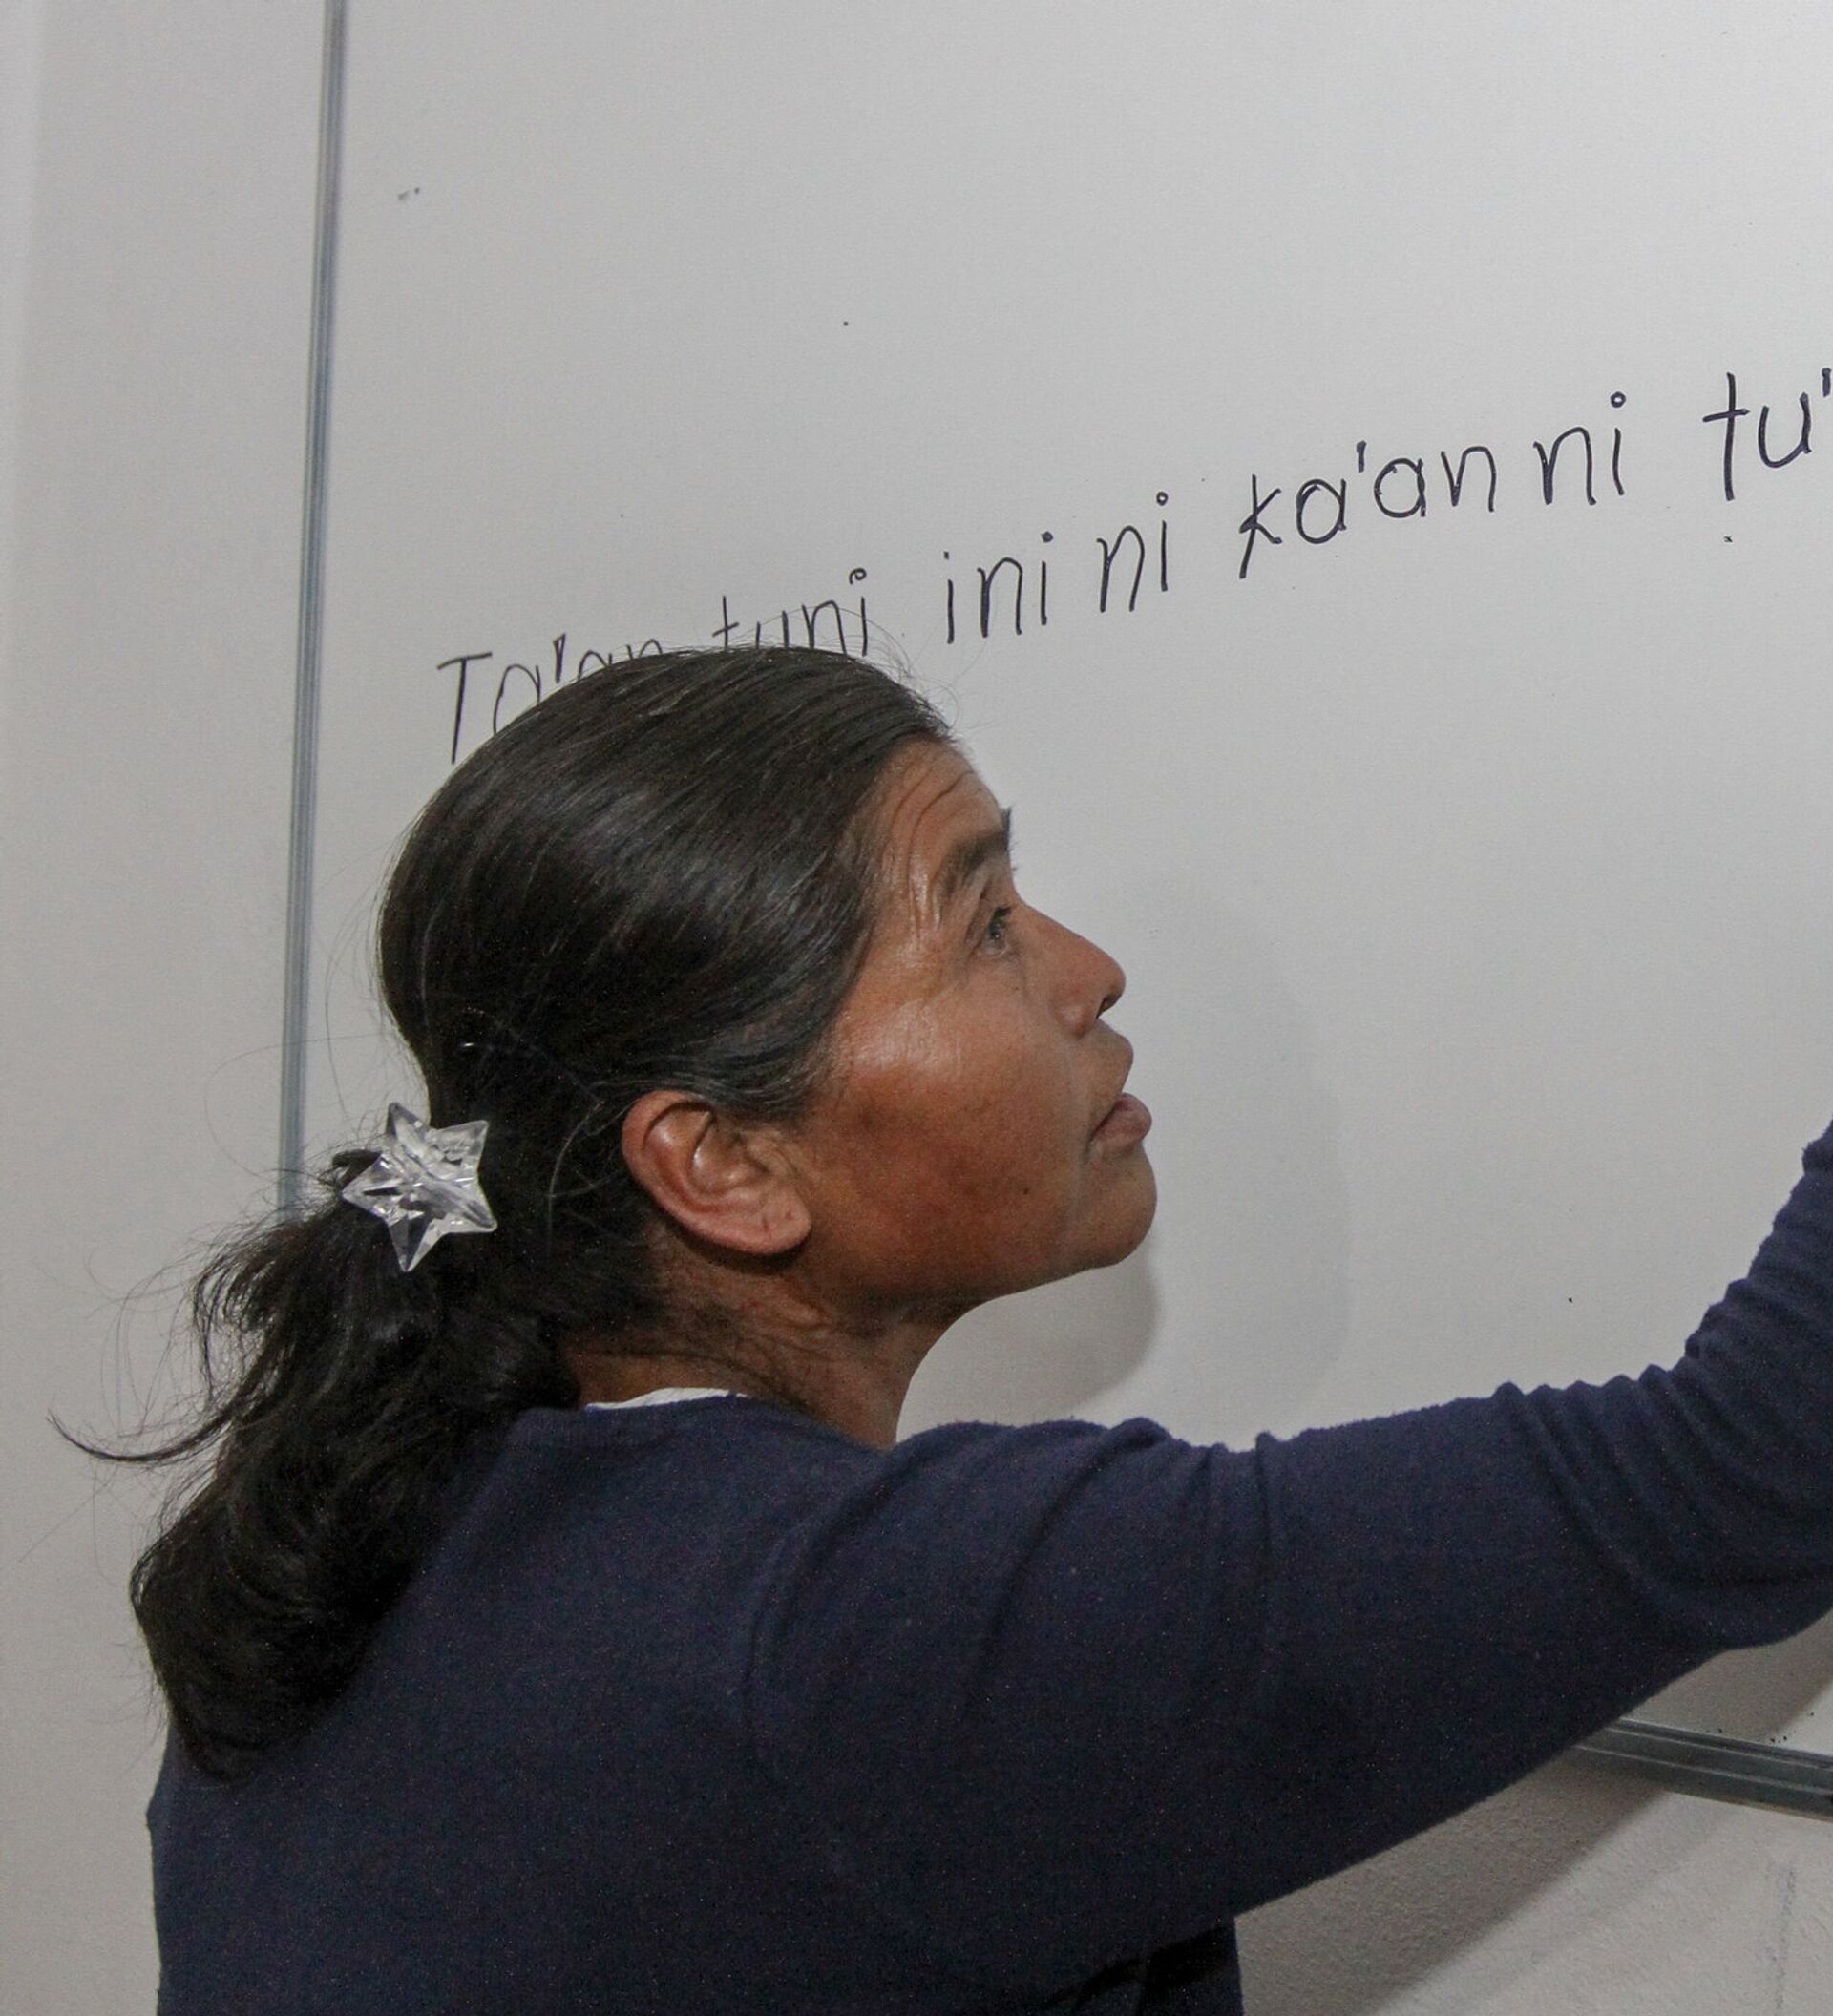 Ta'an tuni ini ni ka'an ni tu'